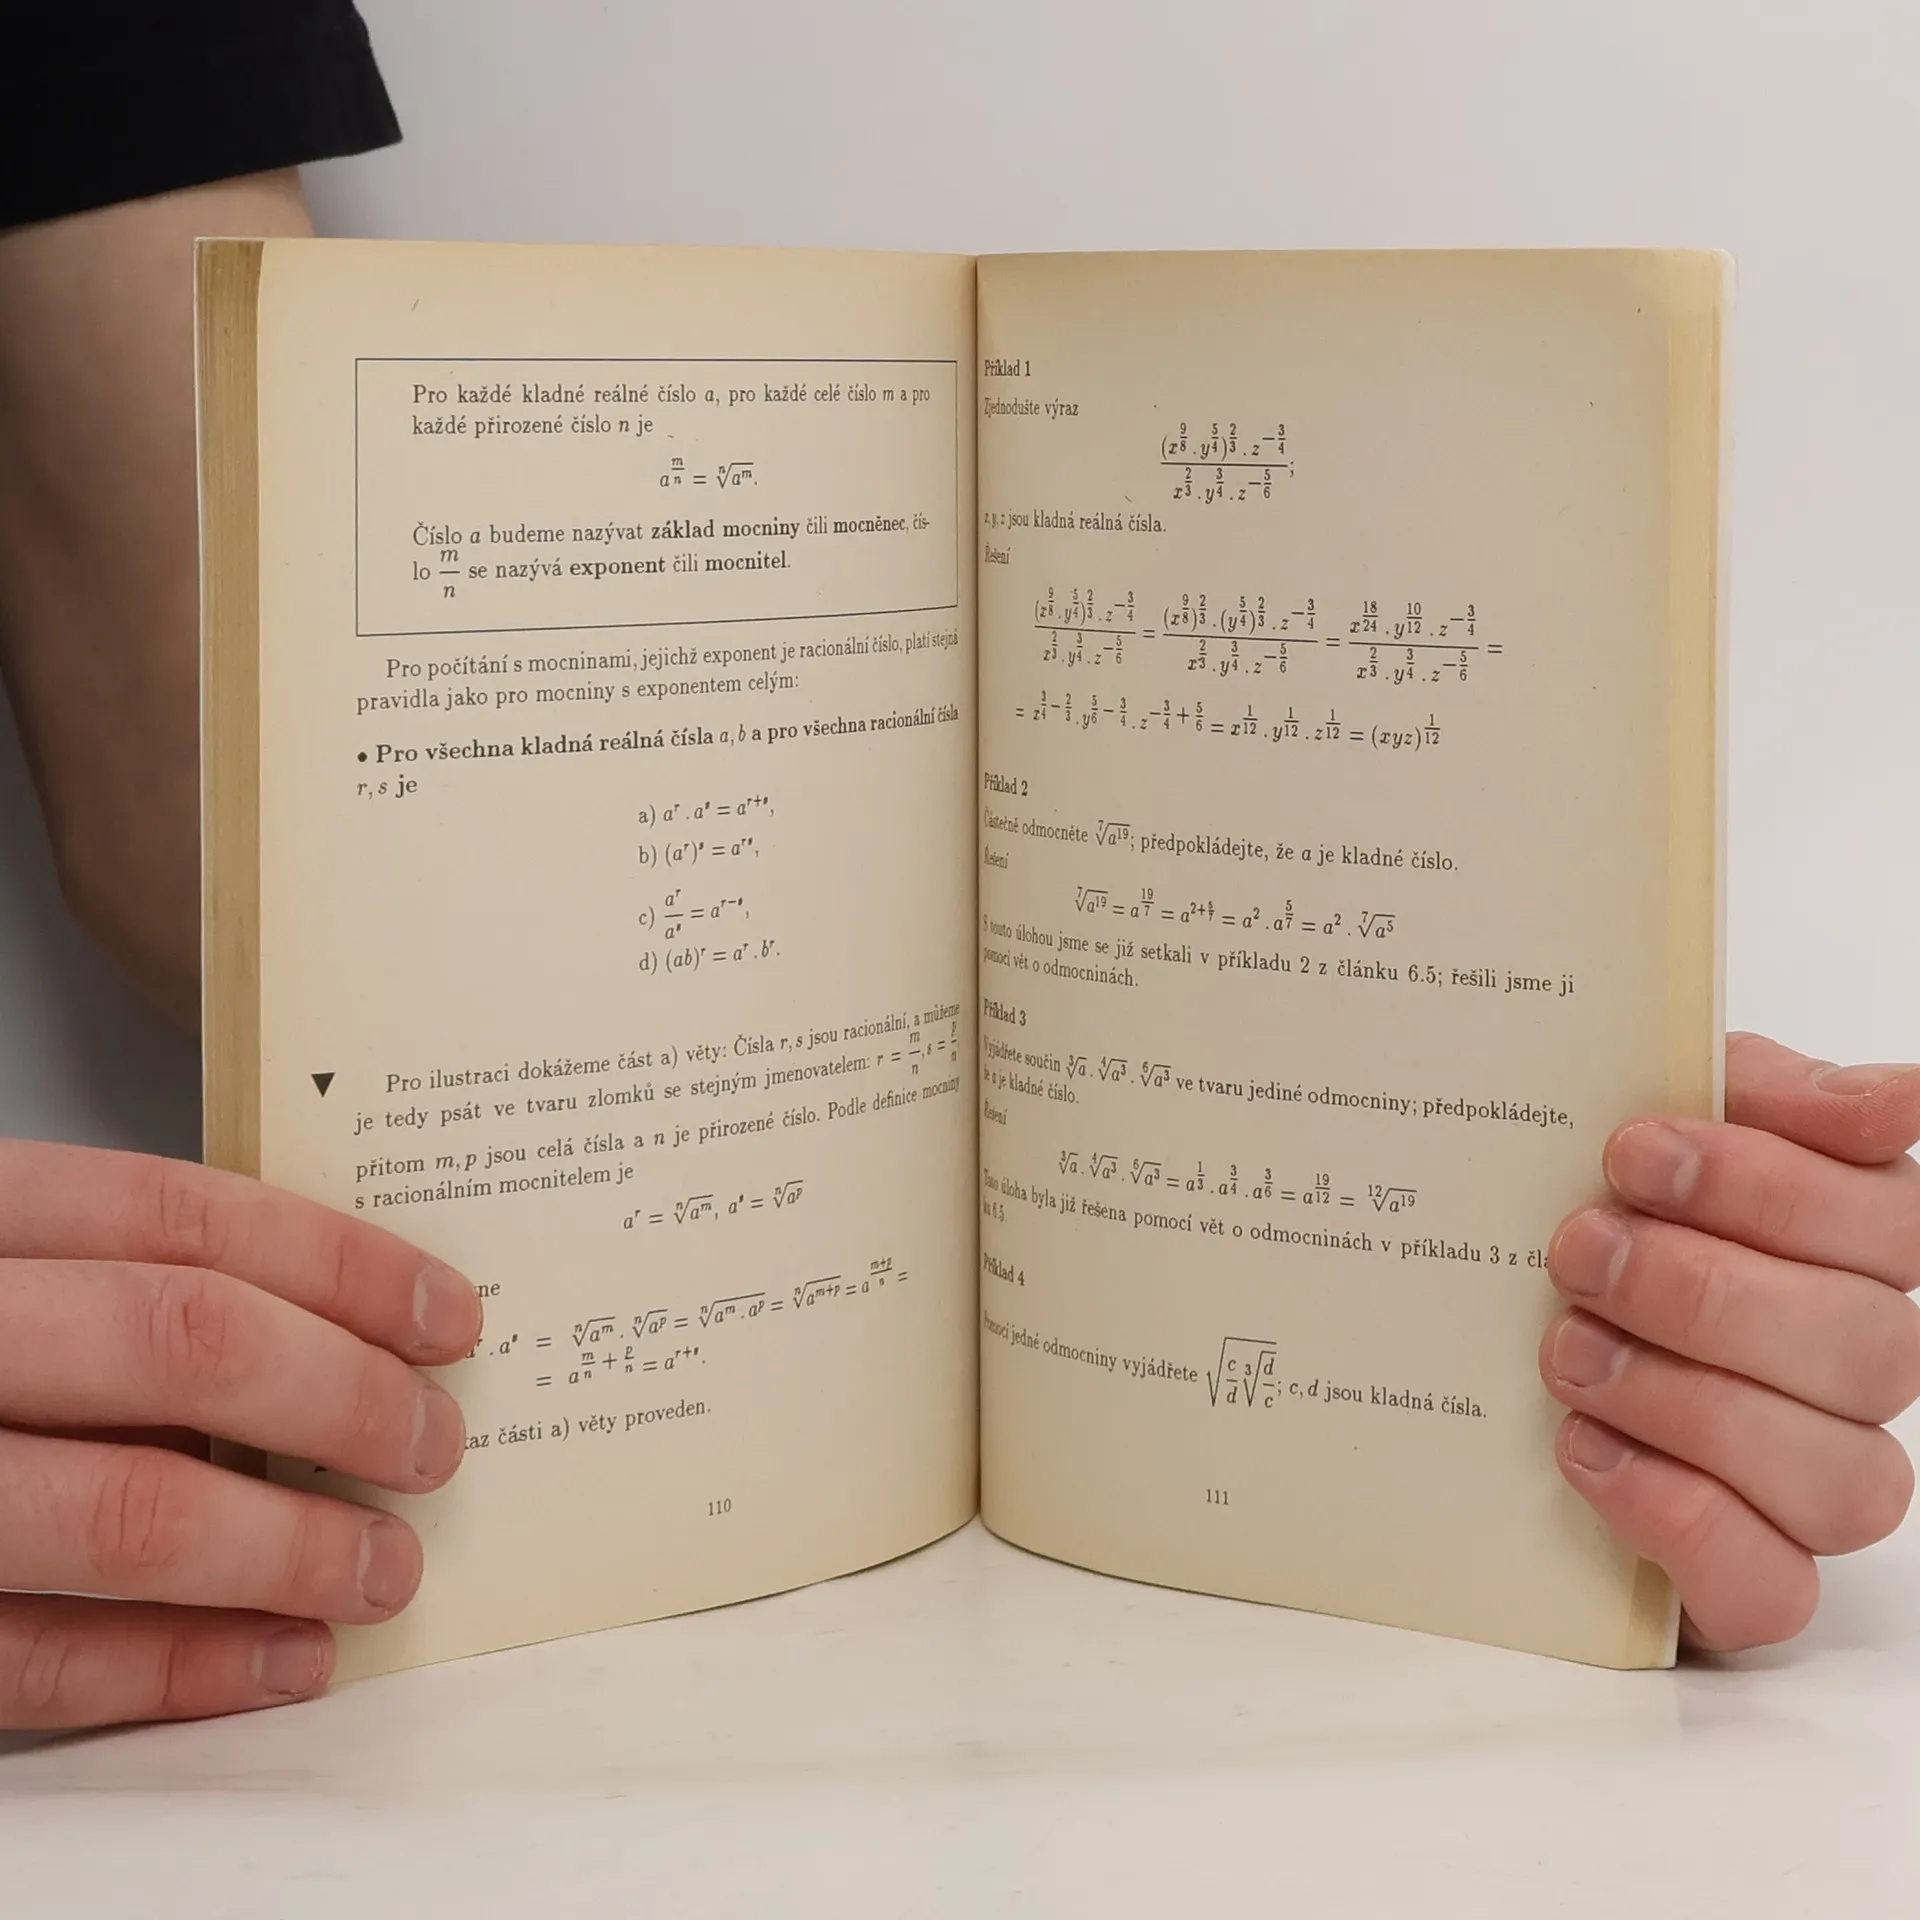 Pro každé kladné reálné číslo a, pro každé celé číslo m a pro
každé přirozené číslo n je
a^{\frac{m}{n}} = \sqrt[n]{a^m}.
Číslo a budeme nazývat základ mocniny čili mocněnec, čís-
lo \frac{m}{n} se nazývá exponent čili mocnitel.
Pro počítání s mocninami, jejichž exponent je racionální číslo, platí stejná
pravidla jako pro mocniny s exponentem celým:
• Pro všechna kladná reálná čísla a, b a pro všechna racionální čísla
r, s je
a) a^r . a^s = a^{r+s},
b) (a^r)^s = a^{rs},
c) \frac{a^r}{a^s} = a^{r-s},
d) (ab)^r = a^r . b^r.
▼ Pro ilustraci dokážeme část a) věty: Čísla r, s jsou racionální, a můžeme
je tedy psát ve tvaru zlomků se stejným jmenovatelem: r = \frac{m}{n}, s = \frac{p}{n}
přitom m, p jsou celá čísla a n je přirozené číslo. Podle definice mocniny
s racionálním mocnitelem je
a^r = \sqrt[n]{a^m}, a^s = \sqrt[n]{a^p}
ne
. a^s = \sqrt[n]{a^m} . \sqrt[n]{a^p} = \sqrt[n]{a^m . a^p} = \sqrt[n]{a^{m+p}} = a^{\frac{m+p}{n}} =
= a^{\frac{m}{n} + \frac{p}{n}} = a^{r+s}.
az části a) věty proveden.
110
Příklad 1
Zjednodušte výraz
\frac{(x^{\frac{9}{8}} . y^{\frac{5}{4}})^{\frac{2}{3}} . z^{-\frac{3}{4}}}{x^{\frac{2}{3}} . y^{\frac{3}{4}} . z^{-\frac{5}{6}}};
x, y, z jsou kladná reálná čísla.
Řešení
\frac{(x^{\frac{9}{8}} . y^{\frac{5}{4}})^{\frac{2}{3}} . z^{-\frac{3}{4}}}{x^{\frac{2}{3}} . y^{\frac{3}{4}} . z^{-\frac{5}{6}}} = \frac{(x^{\frac{9}{8}})^{\frac{2}{3}} . (y^{\frac{5}{4}})^{\frac{2}{3}} . z^{-\frac{3}{4}}}{x^{\frac{2}{3}} . y^{\frac{3}{4}} . z^{-\frac{5}{6}}} = \frac{x^{\frac{18}{24}} . y^{\frac{10}{12}} . z^{-\frac{3}{4}}}{x^{\frac{2}{3}} . y^{\frac{3}{4}} . z^{-\frac{5}{6}}} =
= x^{\frac{3}{4} - \frac{2}{3}} . y^{\frac{5}{6} - \frac{3}{4}} . z^{-\frac{3}{4} + \frac{5}{6}} = x^{\frac{1}{12}} . y^{\frac{1}{12}} . z^{\frac{1}{12}} = (xyz)^{\frac{1}{12}}
Příklad 2
Částečně odmocněte \sqrt[7]{a^{19}}; předpokládejte, že a je kladné číslo.
Řešení
\sqrt[7]{a^{19}} = a^{\frac{19}{7}} = a^{2+\frac{5}{7}} = a^2 . a^{\frac{5}{7}} = a^2 . \sqrt[7]{a^5}
S touto úlohou jsme se již setkali v příkladu 2 z článku 6.5; řešili jsme ji
pomocí vět o odmocninách.
Příklad 3
Vyjádřete součin \sqrt[3]{a} . \sqrt[4]{a^3} . \sqrt[6]{a^3} ve tvaru jediné odmocniny; předpokládejte,
že a je kladné číslo.
Řešení
\sqrt[3]{a} . \sqrt[4]{a^3} . \sqrt[6]{a^3} = a^{\frac{1}{3}} . a^{\frac{3}{4}} . a^{\frac{3}{6}} = a^{\frac{19}{12}} = \sqrt[12]{a^{19}}
Tato úloha byla již řešena pomocí vět o odmocninách v příkladu 3 z člá
ku 6.5.
Příklad 4
Pomocí jedné odmocniny vyjádřete \sqrt{\frac{c}{d}\sqrt[3]{\frac{d}{c}}}; c, d jsou kladná čísla.
111